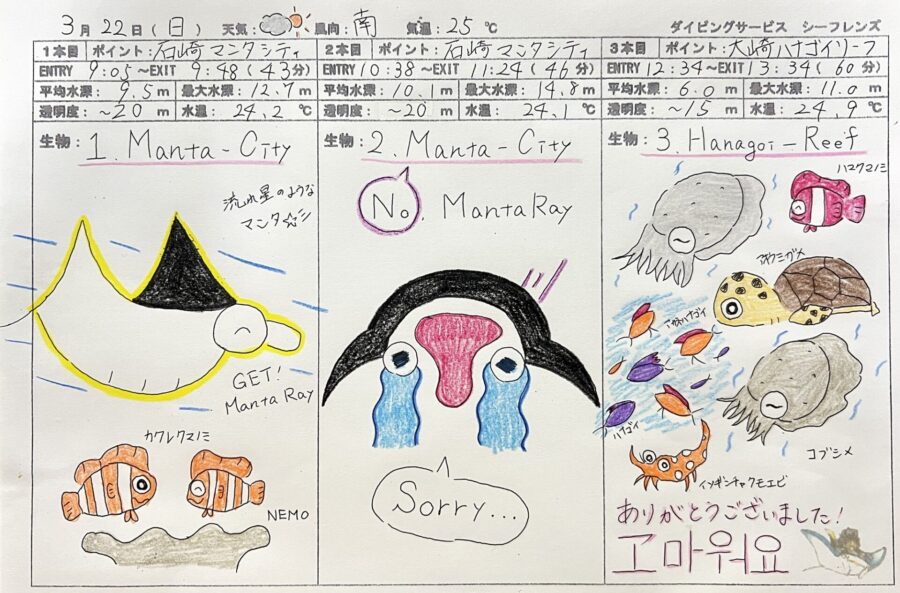 3月22日(日) 天気: 風向:南 気温:25℃ ダイビングサービス シーフレンズ
1本目 ポイント:石崎マンタシティ
ENTRY 9:05〜EXIT 9:48(43分)
平均水深:9.5m 最大水深:12.7m
透明度:~20m 水温:24.2℃
生物:1. Manta-City
流れ星のような
マンタ☆彡
GET!
Manta Ray
カクレクマノミ
NEMO
2本目 ポイント:石崎マンタシティ
ENTRY 10:38〜EXIT 11:24(46分)
平均水深:10.1m 最大水深:14.8m
透明度:~20m 水温:24.1℃
生物:2. Manta-City
No. Manta Ray
Sorry...
3本目 ポイント:大崎ハナゴイリーフ
ENTRY 12:34〜EXIT 13:34(60分)
平均水深:6.0m 最大水深:11.0m
透明度:~15m 水温:24.9℃
生物:3. Hanagoi-Reef
ハマクマノミ
アオウミガメ
ハナゴイ
コブシメ
イソギンチャクモエビ
ありがとうございました!
고마워요